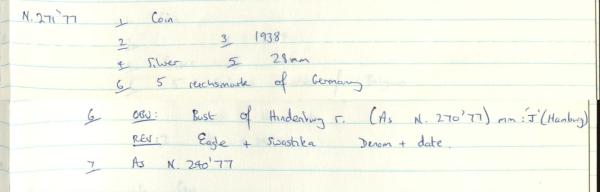 N.271'77 1 Coin
2 3 1938
4 Silver 5 28mm
6 5 reichsmark of Germany
6 OBV: Bust of Hindenburg r. (As N. 270'77) mm: 'J' (Hamburg)
REV: Eagle + swastika Denom + date.
7 As N. 240'77